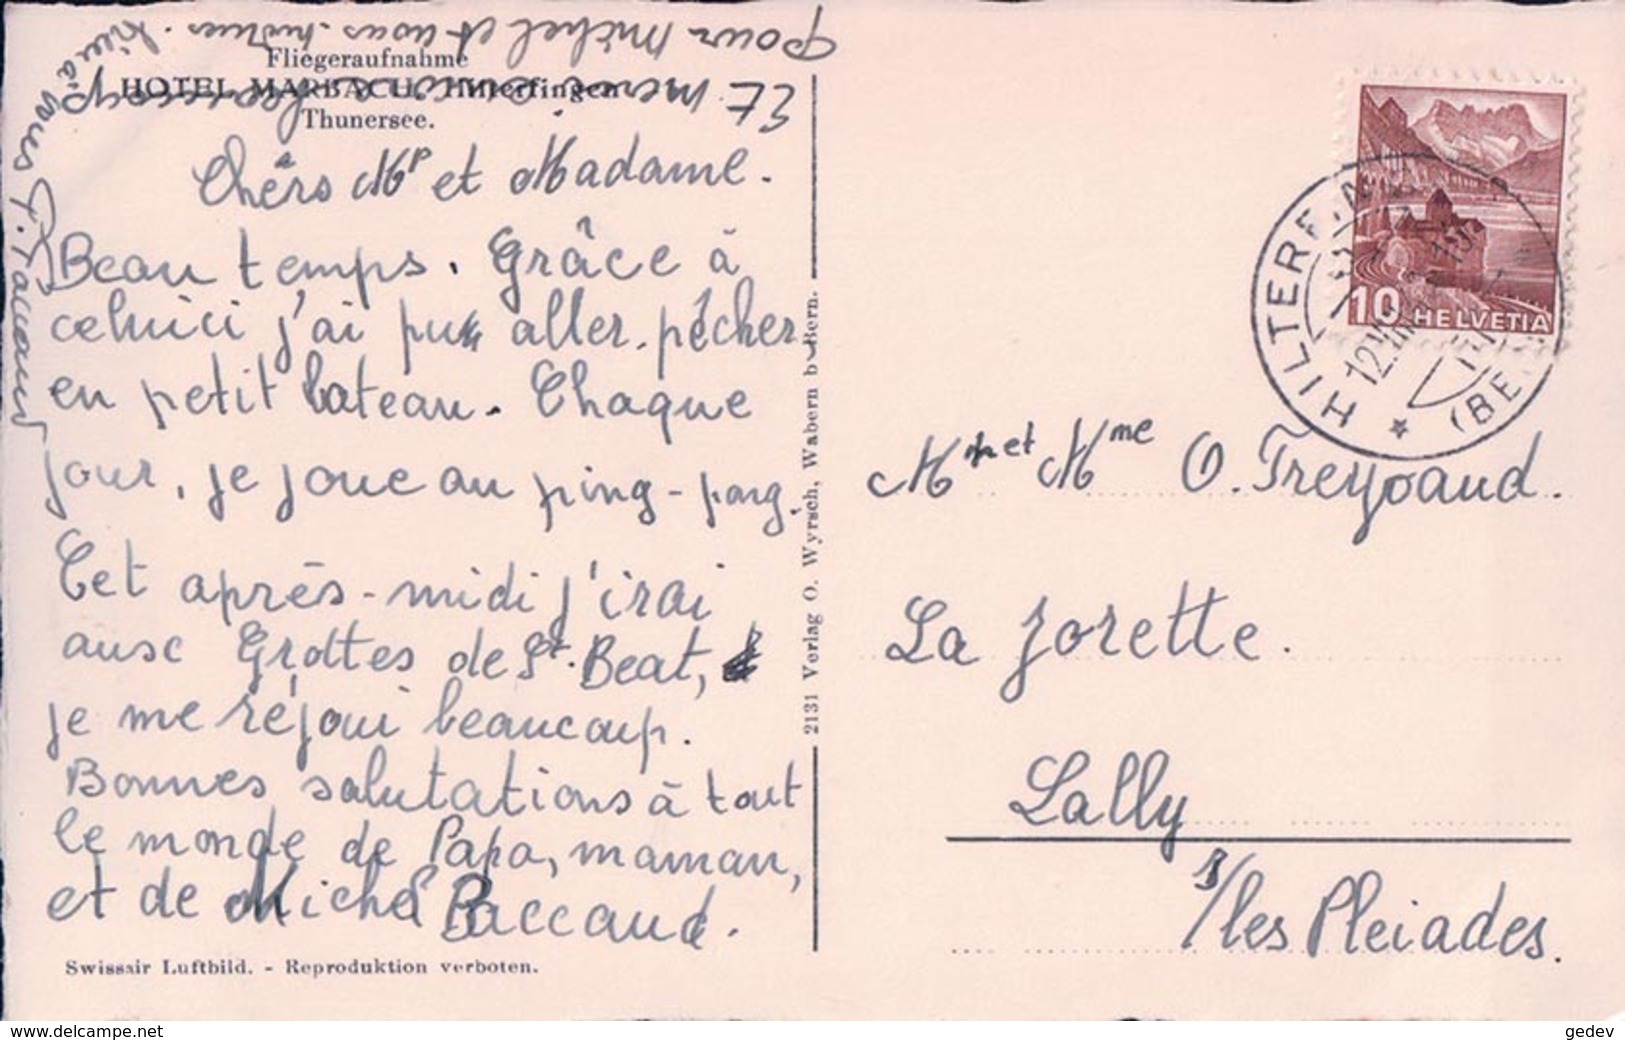 Fliegeraufnahme
HOTEL MARBACH, Hilterfingen
Thunersee.
Chêrs Mr et Madame.
Beau temps. Grâce à
celuici j'ai pu aller pêcher
en petit bateau. Chaque
jour, je joue au ping-pong.
Cet après-midi j'irai
aux Grottes de St. Beat,
je me réjoui beaucoup.
Bonnes salutations à tout
le monde de Papa, maman,
et de Michel Baccaud.
Et merci
pour Michel et nous-mêmes.
à vous
Swissair Luftbild. - Reproduktion verboten.
2131 Verlag O. Wyrsch, Wabern b. Bern.
10 HELVETIA
HILTERFINGEN
(BE
Mr et Mme O. Treypaud.
La Jorette.
Lally
s/les Pleiades.
www.delcampe.net
gedev